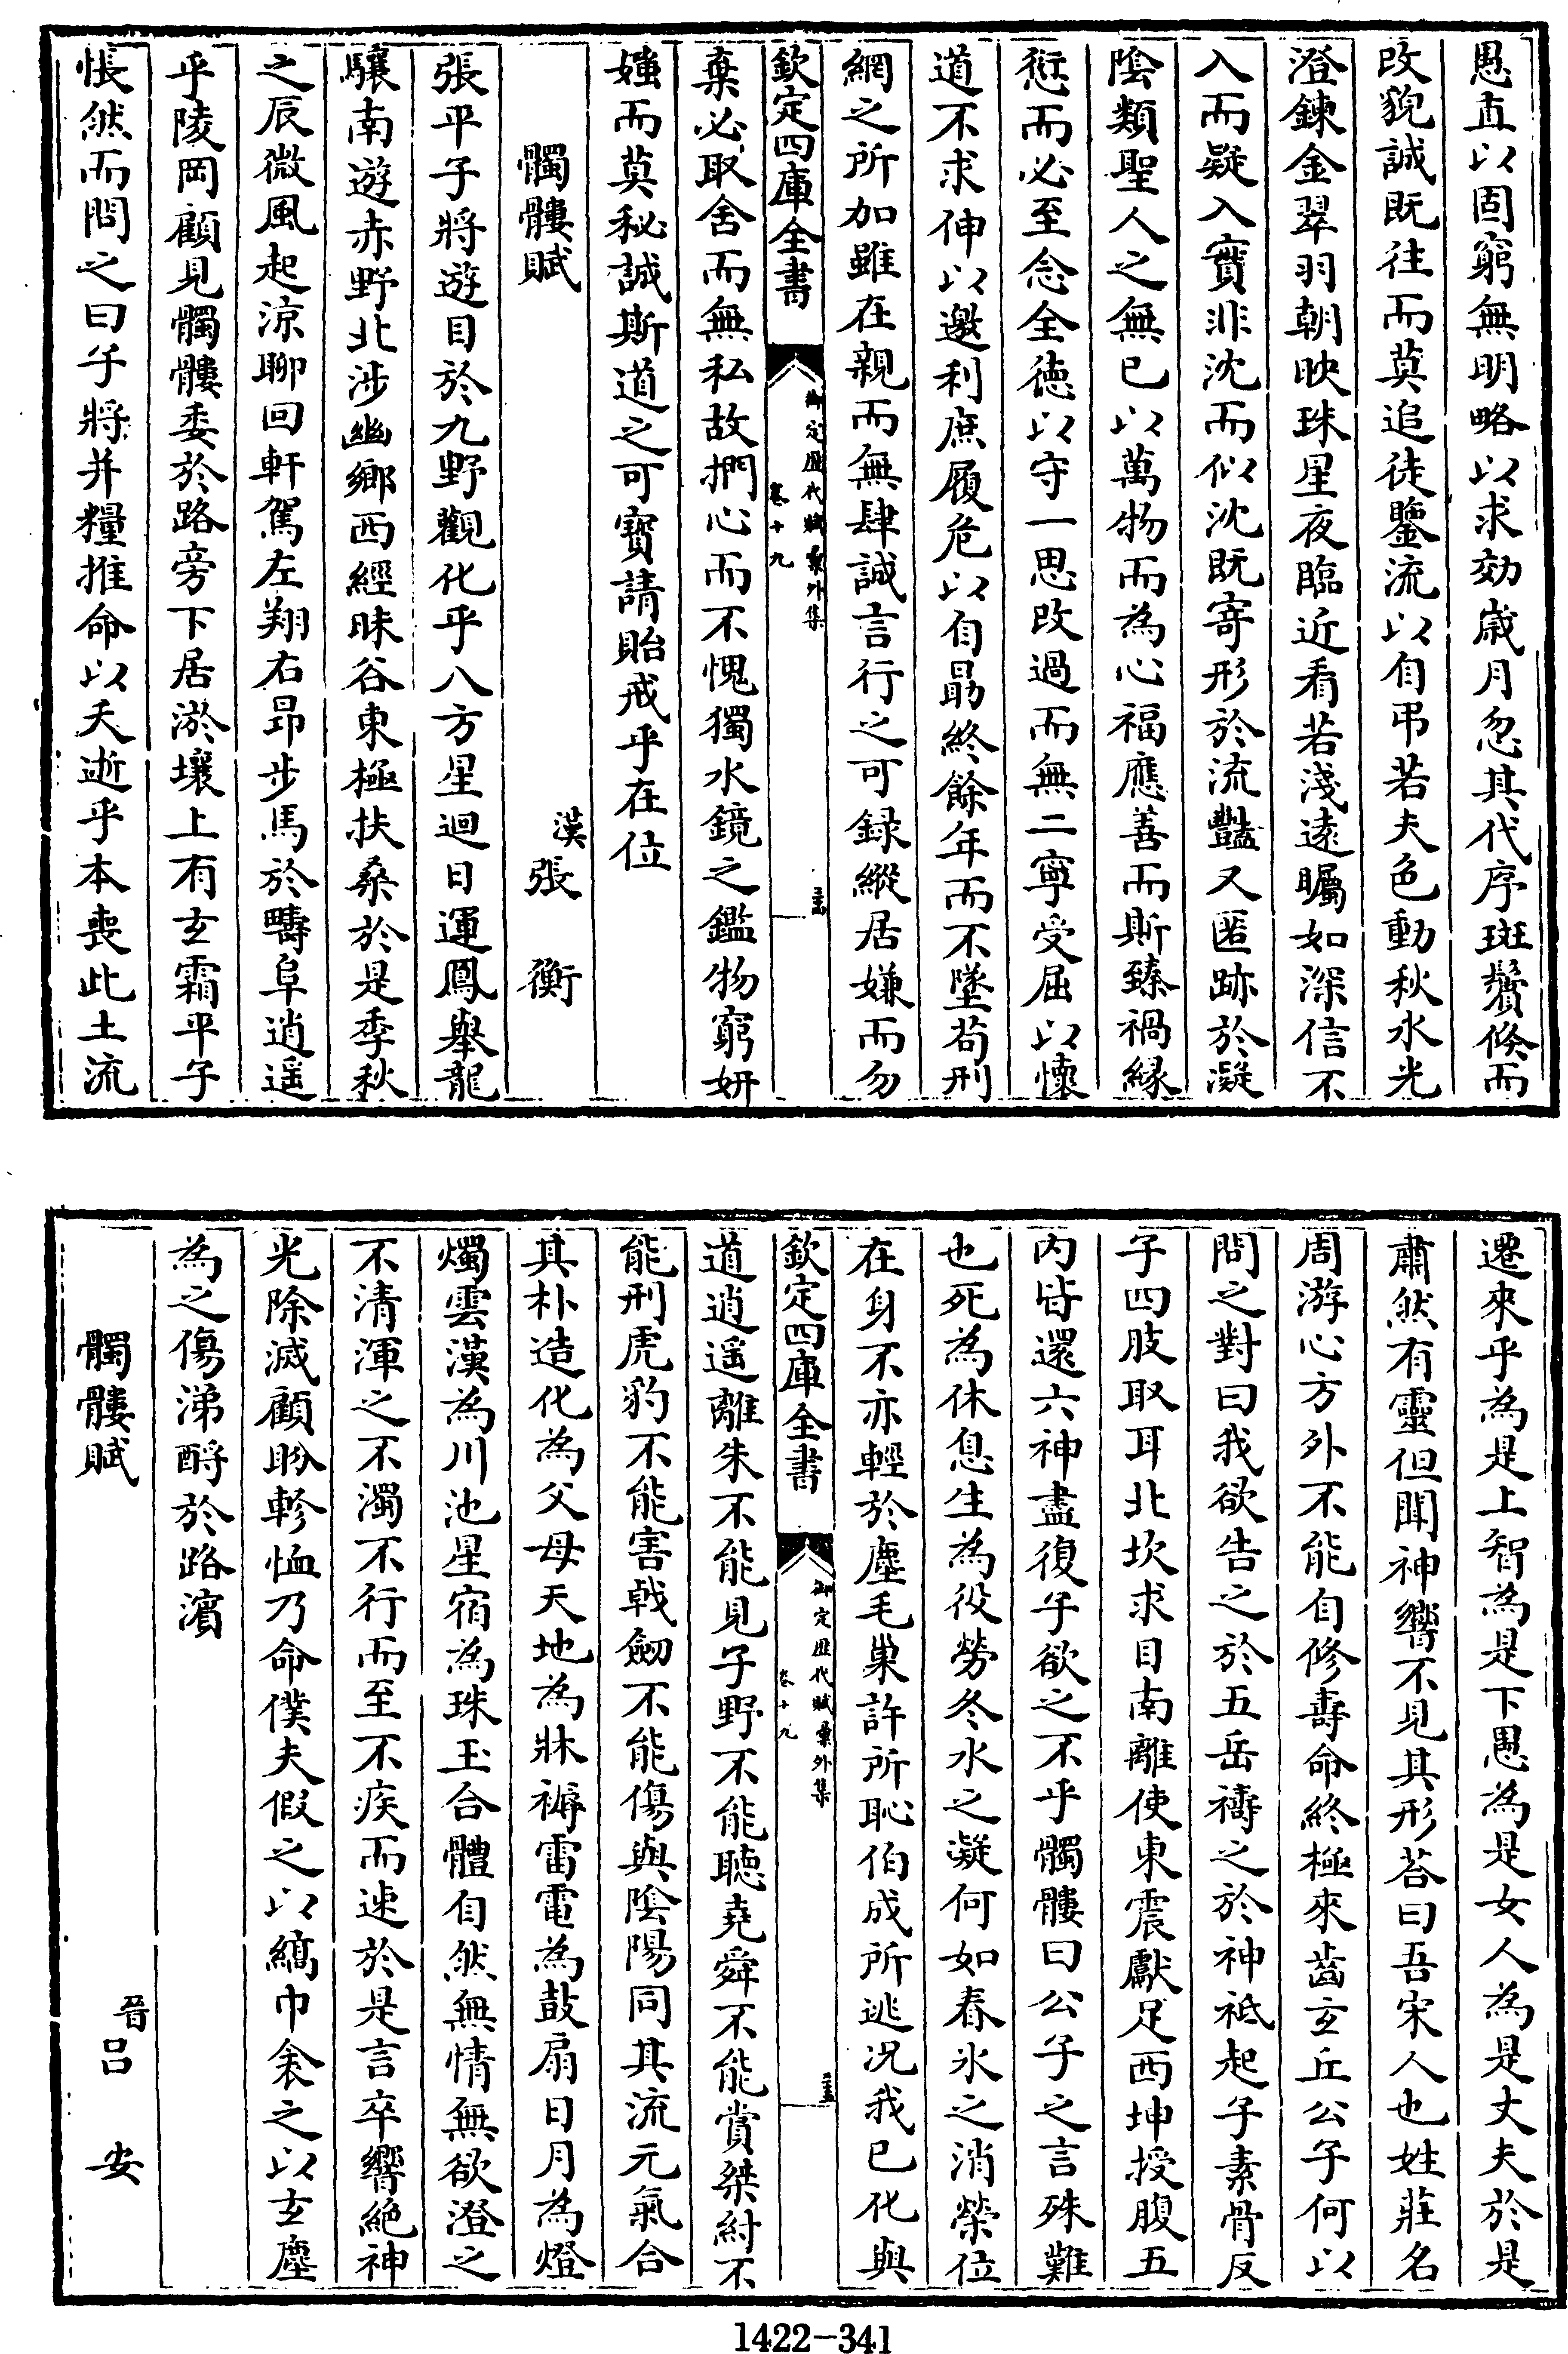 愚直以固窮無明略以求効歳月忽其代序斑鬢倐而
改貌誠既往而莫追徒鑒流以自弔若夫色動秋水光
澄鍊金翠羽朝映珠星夜臨近看若淺遠矚如深信不
入而疑入實非沈而似沈既寄形於流豔又匿跡於凝
陰類聖人之無已以萬物而為心福應善而斯臻禍縁
愆而必至念全徳以守一思改過而無二寧受屈以懷
道不求伸以邀利庶履危以自勗終餘年而不墜苟刑
網之所加雖在親而無肆誠言行之可録縱居嫌而勿
欽定四庫全書
御定歴代賦彙外集
卷十九
棄必取舍而無私故捫心而不愧獨水鏡之鑑物窮妍
媸而莫秘誠斯道之可寳請貽戒乎在位
髑髏賦
漢張衡
張平子將遊目於九野觀化乎八方星迴日運鳳舉龍
驤南遊赤野北涉幽鄉西經昧谷東極扶桑於是季秋
之辰微風起涼聊回軒駕左翔右昻步馬於疇阜逍遥
乎陵岡顧見髑髏委於路旁下居淤壤上有玄霜平子
悵然而問之曰子將并糧推命以夭逝乎本喪此土流
遷來乎為是上智為是下愚為是女人為是丈夫於是
肅然有靈但聞神響不見其形荅曰吾宋人也姓莊名
周游心方外不能自修壽命終極來齒玄丘公子何以
問之對曰我欲告之於五岳禱之於神祗起子素骨反
子四肢取耳北坎求目南離使東震獻足西坤授腹五
内皆還六神盡復子欲之不乎髑髏曰公子之言殊難
也死為休息生為役勞冬水之凝何如春氷之消榮位
在身不亦輕於塵毛巢許所恥伯成所逃況我已化與
欽定四庫全書
御定歴代賦彙外集
卷十九
道逍遥離朱不能見子野不能聽堯舜不能賞桀紂不
能刑虎豹不能害㦸劒不能傷與陰陽同其流元氣合
其朴造化為父母天地為牀褥雷電為鼓扇日月為燈
燭雲漢為川池星宿為珠玉合體自然無情無欲澄之
不清渾之不濁不行而至不疾而速於是言卒響絶神
光除滅顧盻軫恤乃命僕夫假之以縞巾衾之以玄塵
為之傷涕酹於路濱
髑髏賦
晉呂安
1422-341